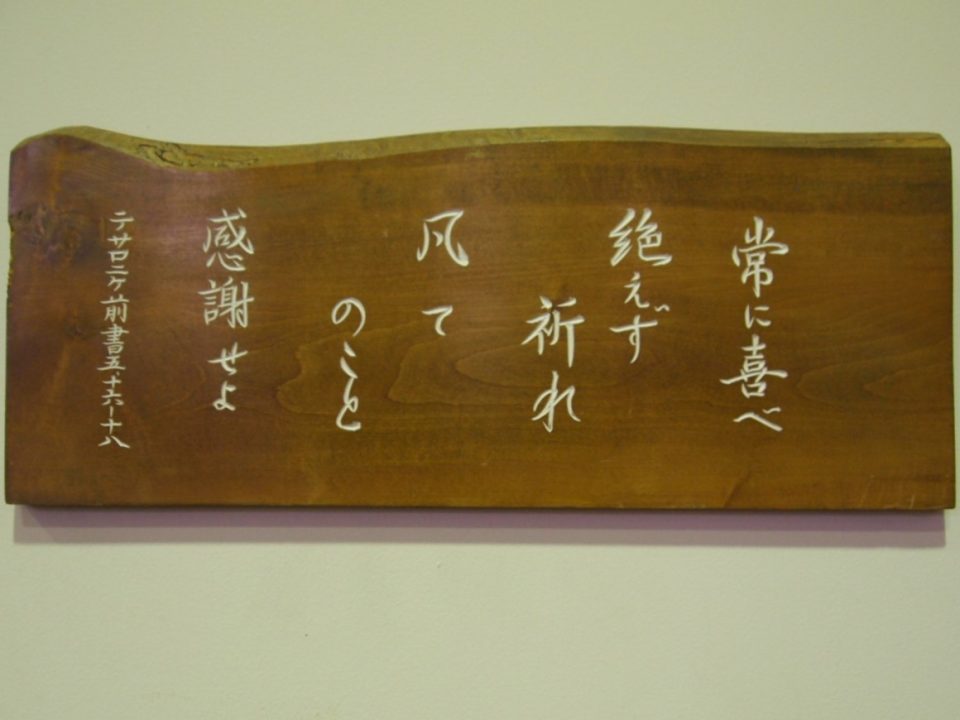 常に喜べ
絶えず
祈れ
凡て
のこと
感謝せよ
テサロニケ前書五・十六ー十八